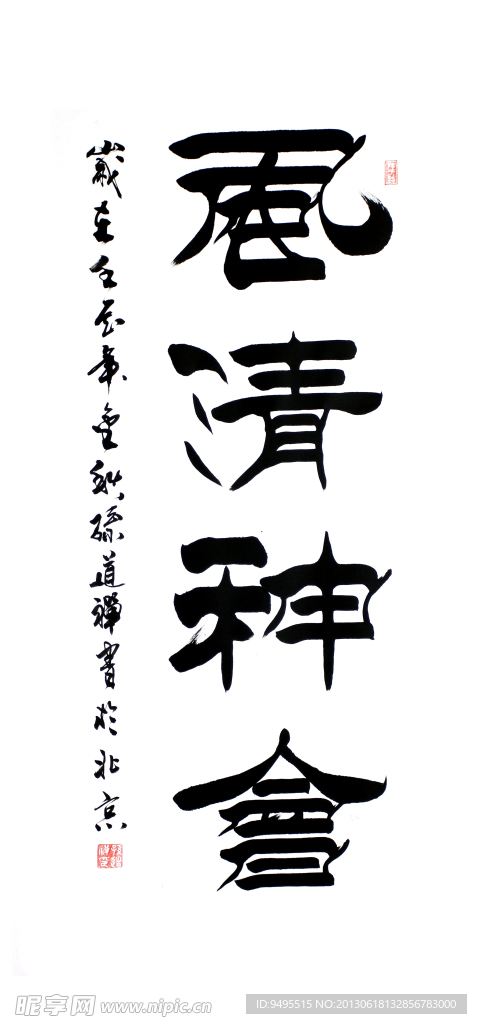 風清神會
歲在壬辰年金秋孫道禪書於北京
昵享网 www.nipic.cn
ID:9495515 NO:20130618132856783000